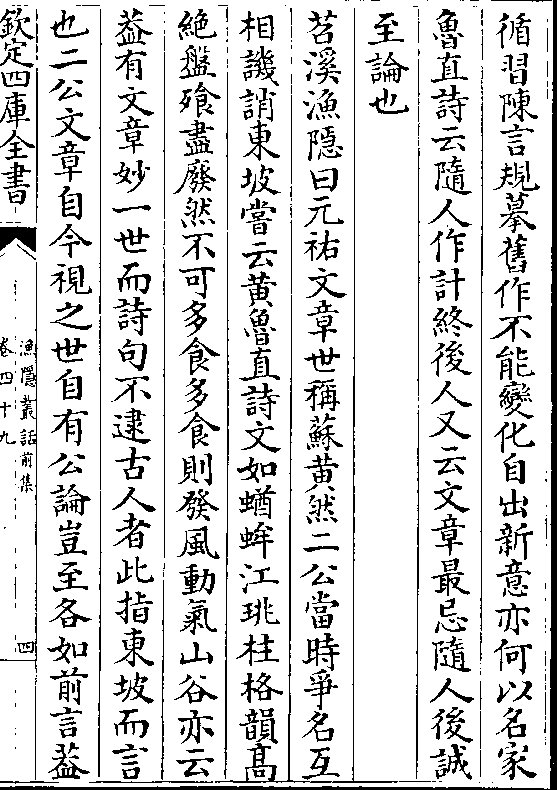 循習陳言規摹舊作不能變化自出新意亦何以名家
魯直詩云隨人作計終後人又云文章最忌隨人後誠
至論也
苕溪漁隱曰元祐文章世稱蘇黃然二公當時爭名互
相譏誚東坡嘗云黃魯直詩文如蝤蛑江珧柱格韻髙
絶盤飱盡廢然不可多食多食則發風動氣山谷亦云
葢有文章妙一世而詩句不逮古人者此指東坡而言
也二公文章自今視之世自有公論豈至各如前言葢
欽定四庫全書
漁隱叢話前集
卷四十九
四